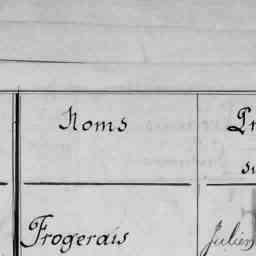 Noms
Frogerais
Julien